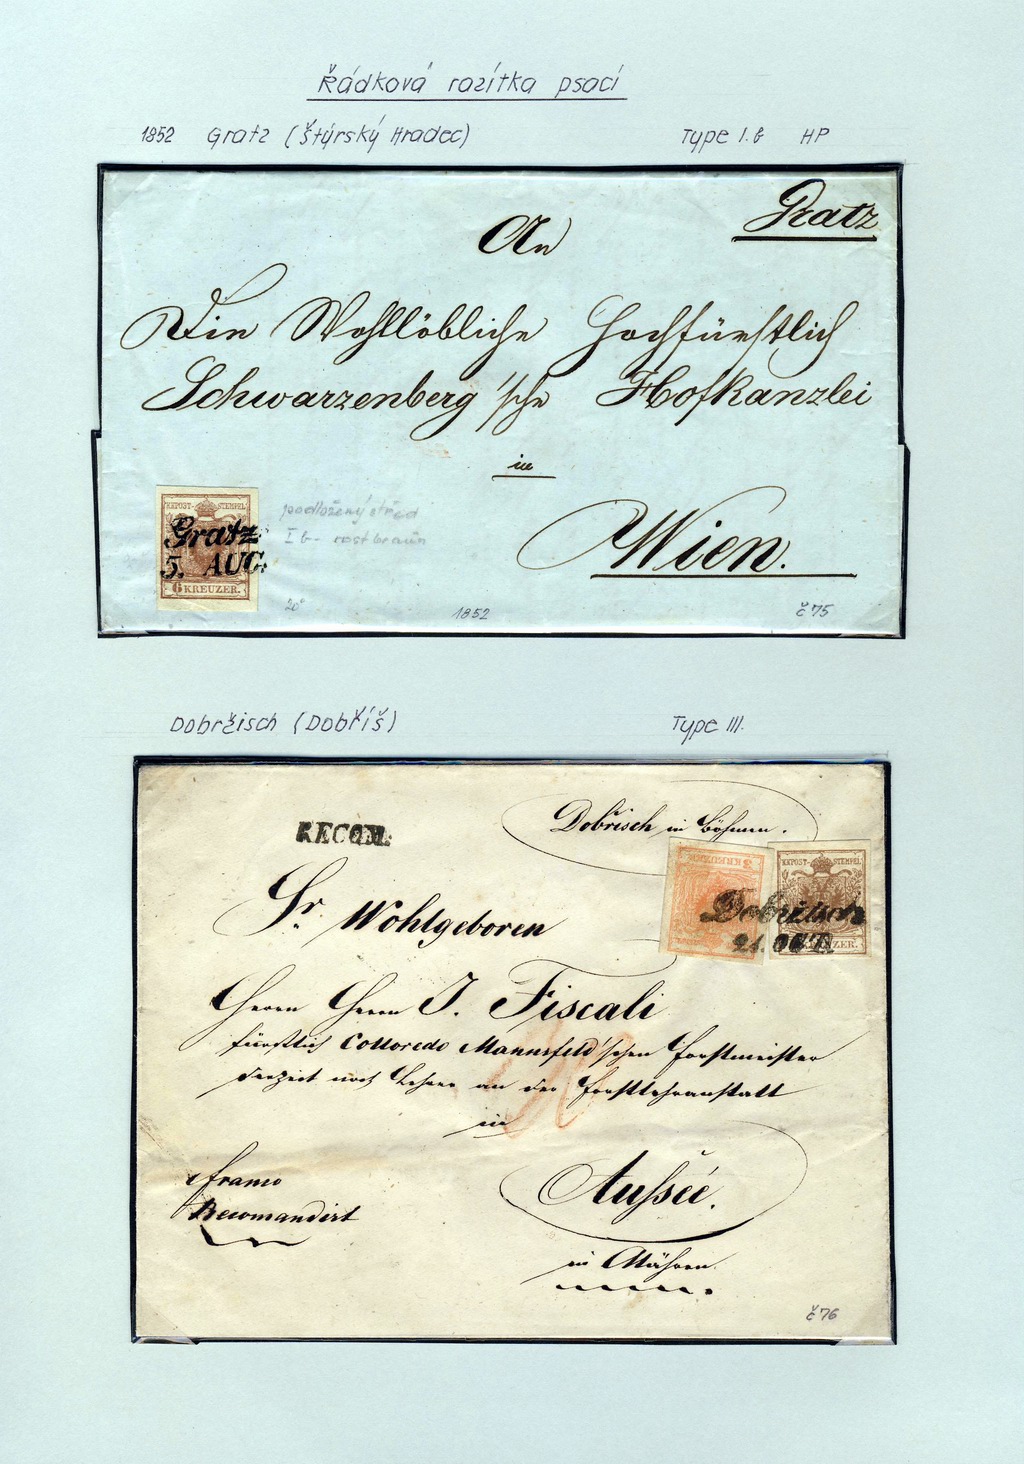 Řádková razítka psací
1852 Gratz (Štýrský Hradec) Type I.b HP
Gratz
An
Die Wohllöbliche Hochfürstlich
Schwarzenberg'sche Hofkanzlei
in
Wien.
KK POST-STEMPEL
Gratz
5. AUG:
6 KREUZER.
podložený střed
I b - rostbraun
20°
1852
č 75
Dobržisch (Dobříš) Type III.
RECOM:
Dobřisch in Böhmen.
3 KREUZER
KK POST-STEMPEL
Dobržisch
21. OCT.
Sr. Wohlgeboren
Herrn Herrn J. Fiscali
fürstlich Colloredo Mannsfeld'schen Forstmeister
derzeit noch Lehrer an der Forstlehranstalt
in
Aussee.
in Mähren.
franco
Recomandirt
č 76